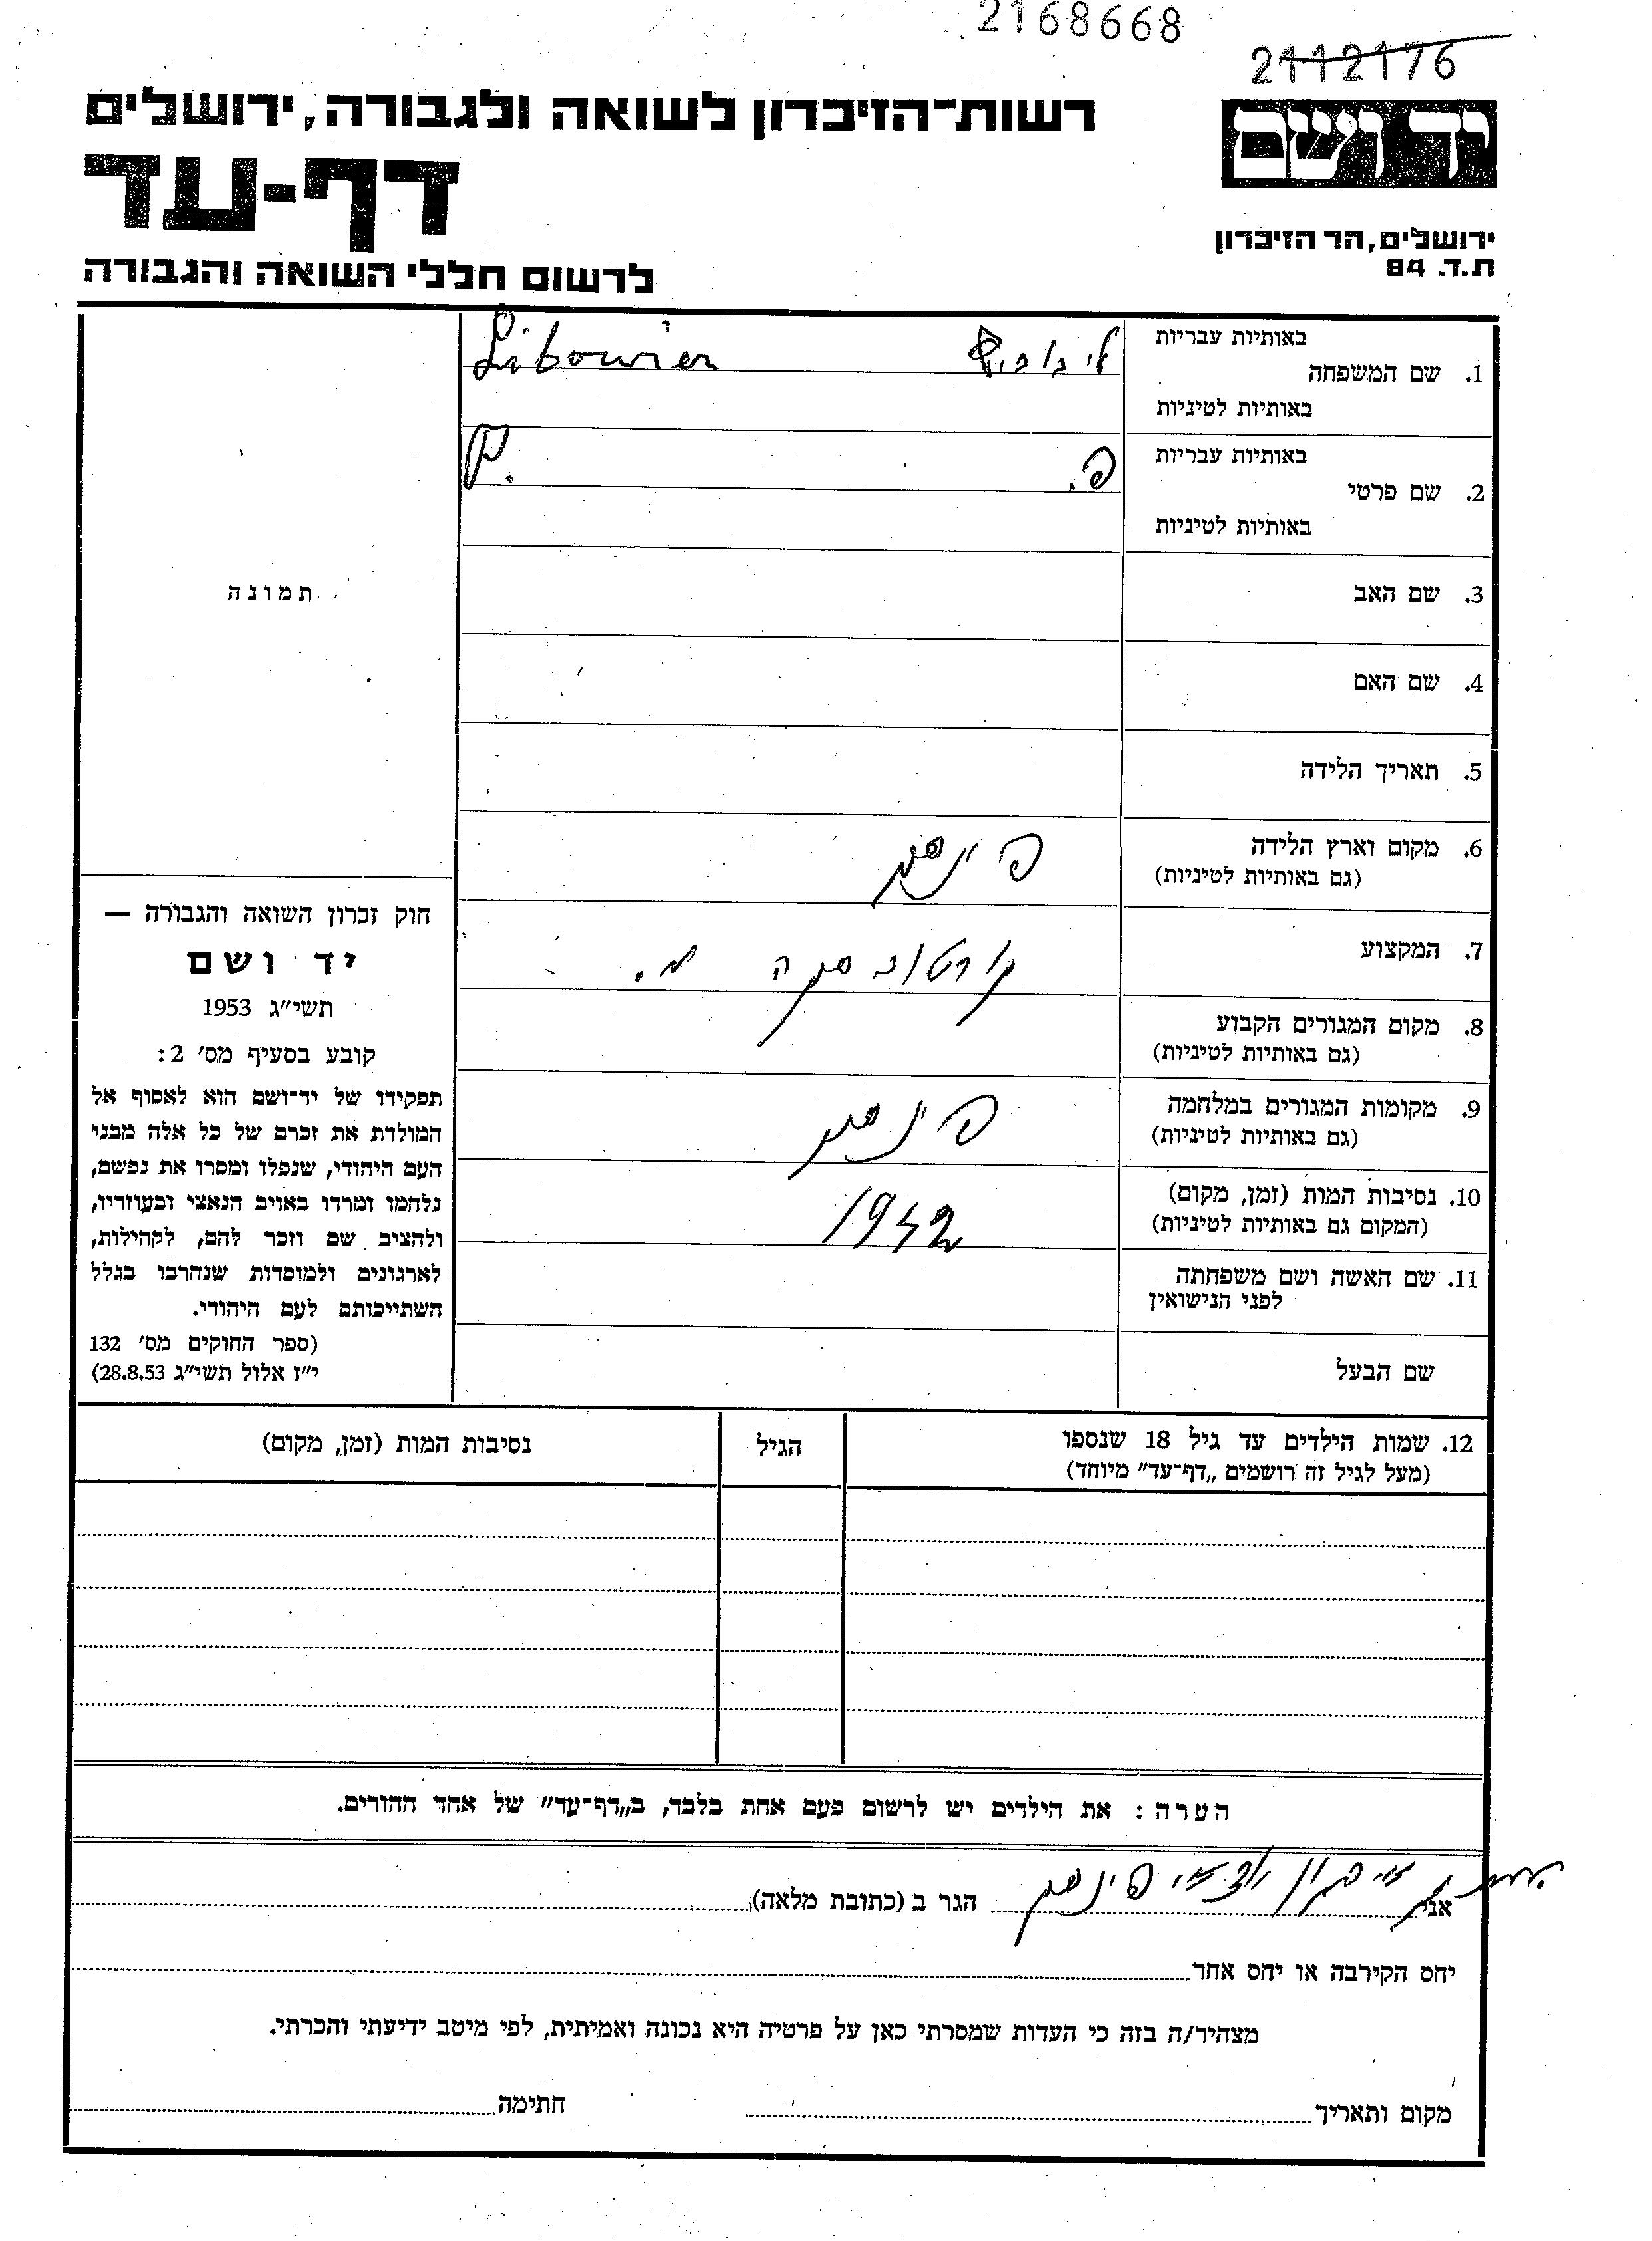 2168668
2112176
יד ושם
רשות־הזיכרון לשואה ולגבורה, ירושלים
דף-עד
ירושלים, הר הזיכרון
ת.ד. 84
לרשום חללי השואה והגבורה
באותיות עבריות
1. שם המשפחה
באותיות לטיניות
Libowien
באותיות עבריות
2. שם פרטי
באותיות לטיניות
פ. P.
3. שם האב
4. שם האם
5. תאריך הלידה
6. מקום וארץ הלידה
(גם באותיות לטיניות)
פינסק
7. המקצוע
8. מקום המגורים הקבוע
(גם באותיות לטיניות)
9. מקומות המגורים במלחמה
(גם באותיות לטיניות)
פינסק
10. נסיבות המות (זמן, מקום)
(המקום גם באותיות לטיניות)
1942
11. שם האשה ושם משפחתה
לפני הנישואין
שם הבעל
תמונה
חוק זכרון השואה והגבורה —
יד ושם
תשי״ג 1953
קובע בסעיף מס׳ 2:
תפקידו של יד־ושם הוא לאסוף אל
המולדת את זכרם של כל אלה מבני
העם היהודי, שנפלו ומסרו את נפשם,
נלחמו ומרדו באויב הנאצי ובעוזריו,
ולהציב שם וזכר להם, לקהילות,
לארגונים ולמוסדות שנחרבו בגלל
השתייכותם לעם היהודי.
(ספר החוקים מס׳ 132
י״ז אלול תשי״ג 28.8.53)
12. שמות הילדים עד גיל 18 שנספו
(מעל לגיל זה רושמים „דף־עד״ מיוחד)
הגיל
נסיבות המות (זמן, מקום)
הערה: את הילדים יש לרשום פעם אחת בלבד, ב„דף־עד״ של אחד ההורים.
אני ארגון יוצאי פינסק הגר ב (כתובת מלאה)
יחס הקירבה או יחס אחר
מצהיר/ה בזה כי העדות שמסרתי כאן על פרטיה היא נכונה ואמיתית, לפי מיטב ידיעתי והכרתי.
מקום ותאריך חתימה